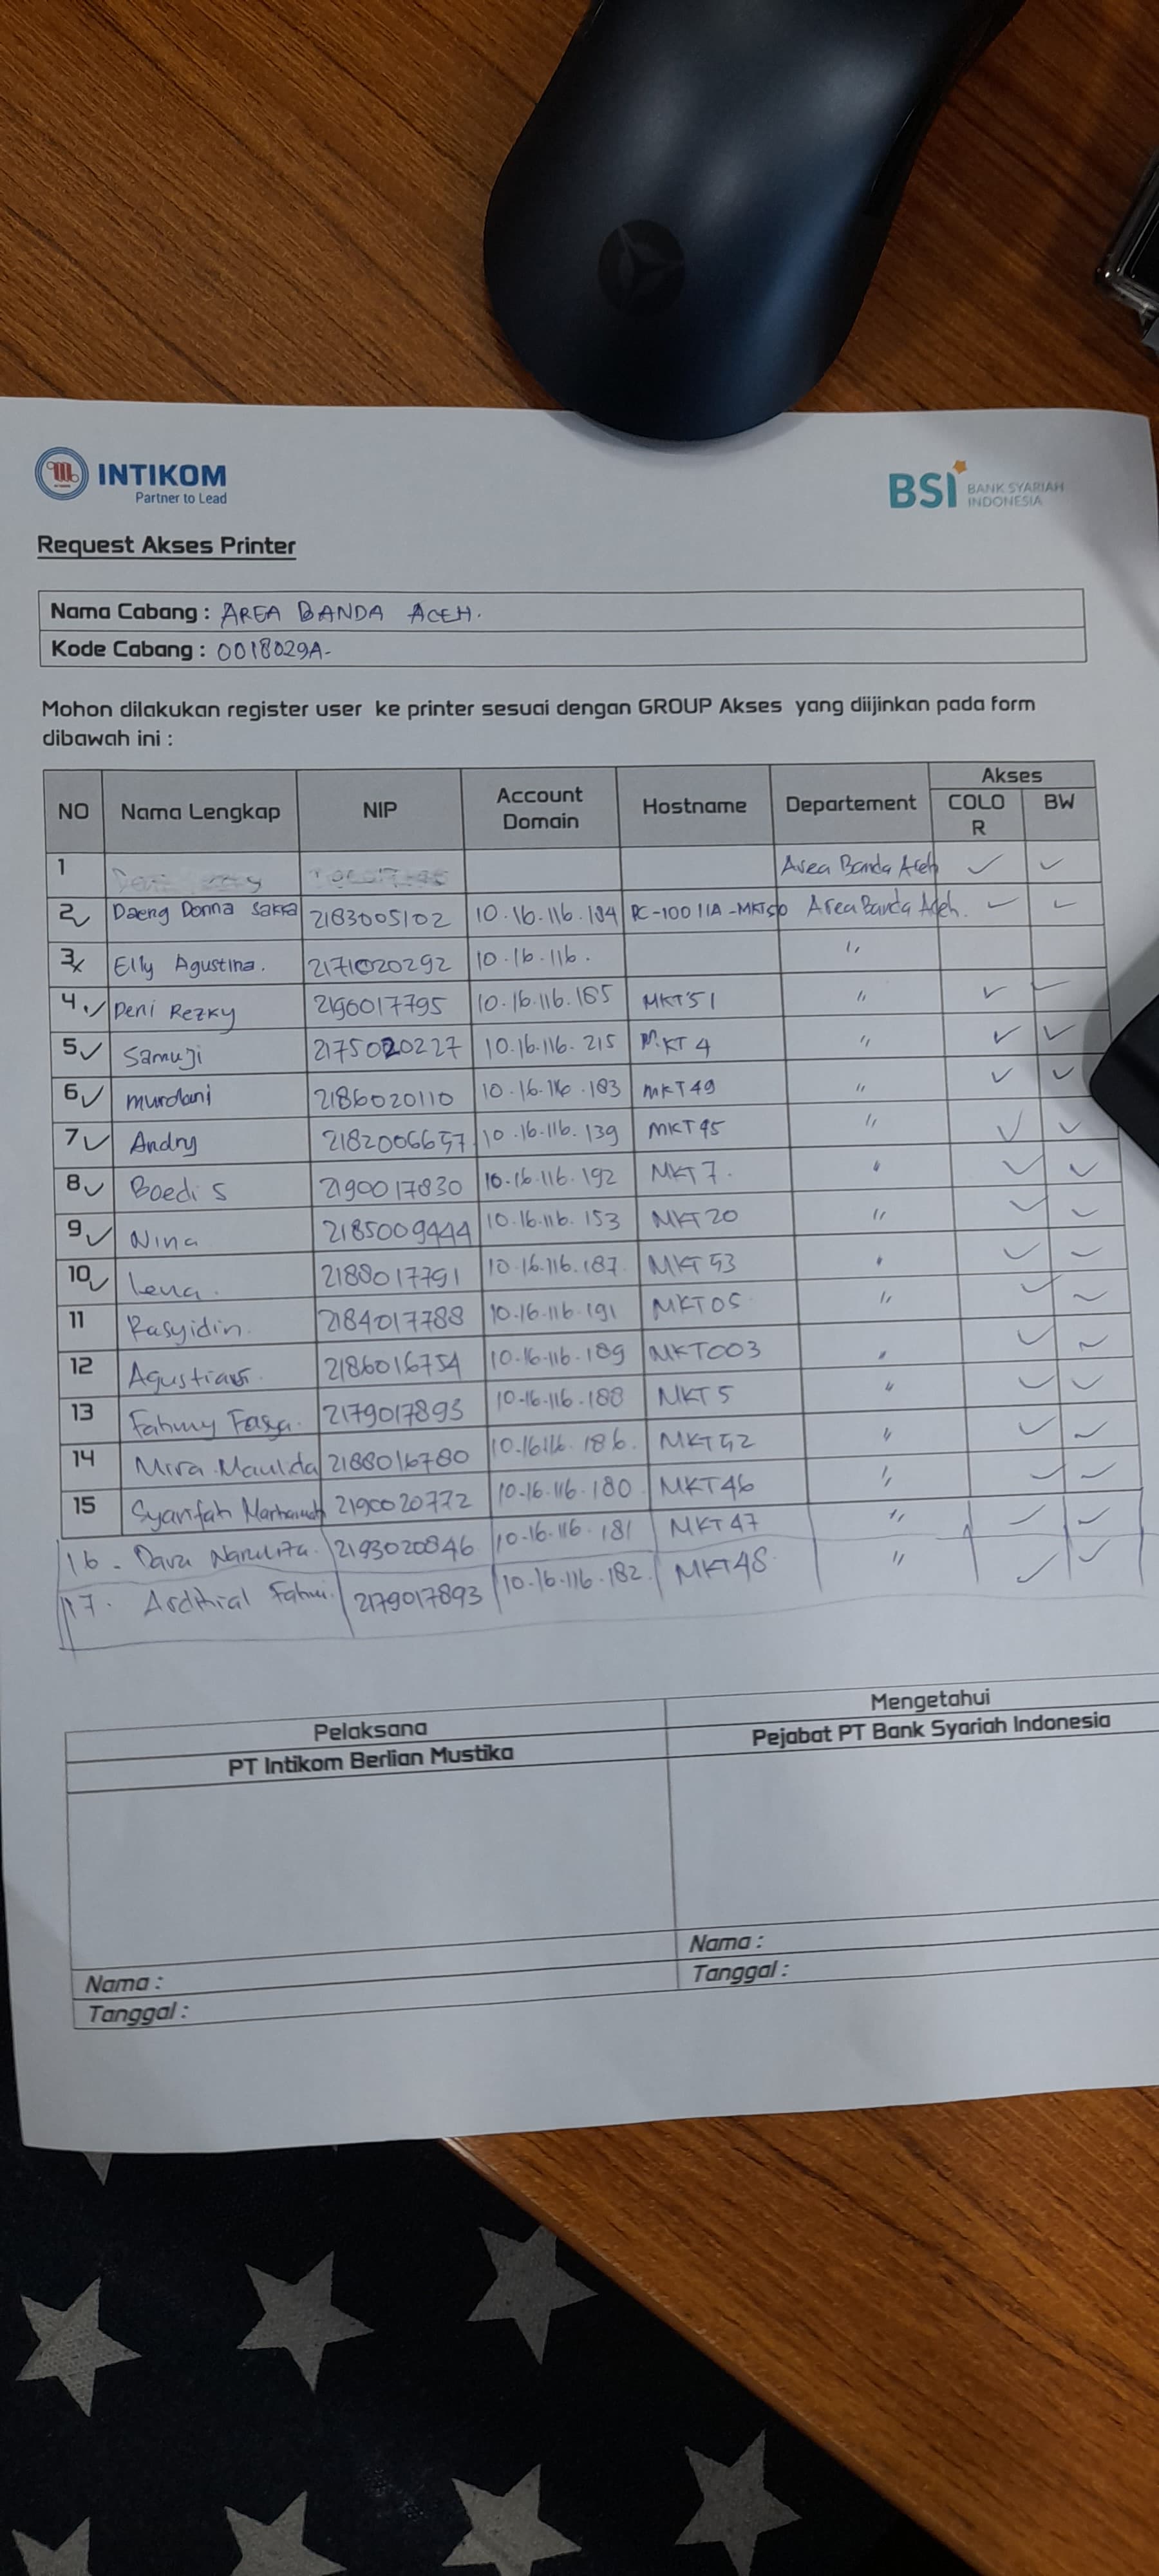 INTIKOM
Partner to Lead
BSI BANK SYARIAH INDONESIA
Request Akses Printer
Nama Cabang : AREA BANDA ACEH.
Kode Cabang : 0018029A-
Mohon dilakukan register user ke printer sesuai dengan GROUP Akses yang diijinkan pada form
dibawah ini :
NO Nama Lengkap NIP Account Domain Hostname Departement Akses COLOR BW
1 Area Banda Aceh ✓ ✓
2 ✓ Daeng Donna Sakra 2183005102 10.16.116.184 PC-10011A-MKT50 Area Banda Aceh. ✓ ✓
3 x Elly Agustina. 2171020292 10.16.116. "
4. ✓ Deni Rezky 2190017795 10.16.116.185 MKT51 " ✓ ✓
5 ✓ Samuji 2175020227 10.16.116.215 MKT 4 " ✓ ✓
6 ✓ murdani 2186020110 10.16.116.183 MKT49 " ✓ ✓
7 ✓ Andry 2182006657 10.16.116.139 MKT45 " ✓ ✓
8 ✓ Boedi S 2190017830 10.16.116.192 MKT 7. " ✓ ✓
9 ✓ Nina 2185009444 10.16.116.153 MKT20 " ✓ ✓
10 ✓ Lena. 2188017791 10.16.116.187 MKT53 " ✓ ✓
11 Rasyidin. 2184017788 10.16.116.191 MKT05 " ✓ ✓
12 2186016754 10.16.116.189 MKT003 " ✓ ✓
13 Fahmy 2179017893 10.16.116.188 MKT5 " ✓ ✓
14 Mira Maulida 2188016780 10.16.116.186. MKT52 " ✓ ✓
15 Syarifah 2190020772 10.16.116.180 MKT46 " ✓ ✓
16 - Dara Narulita. 2193020846 10.16.116.181 MKT47 " ✓ ✓
17. Ardthial Fahmi. 2179017893 10.16.116.182. MKT48 " ✓ ✓
Pelaksana
PT Intikom Berlian Mustika
Nama :
Tanggal :
Mengetahui
Pejabat PT Bank Syariah Indonesia
Nama :
Tanggal :